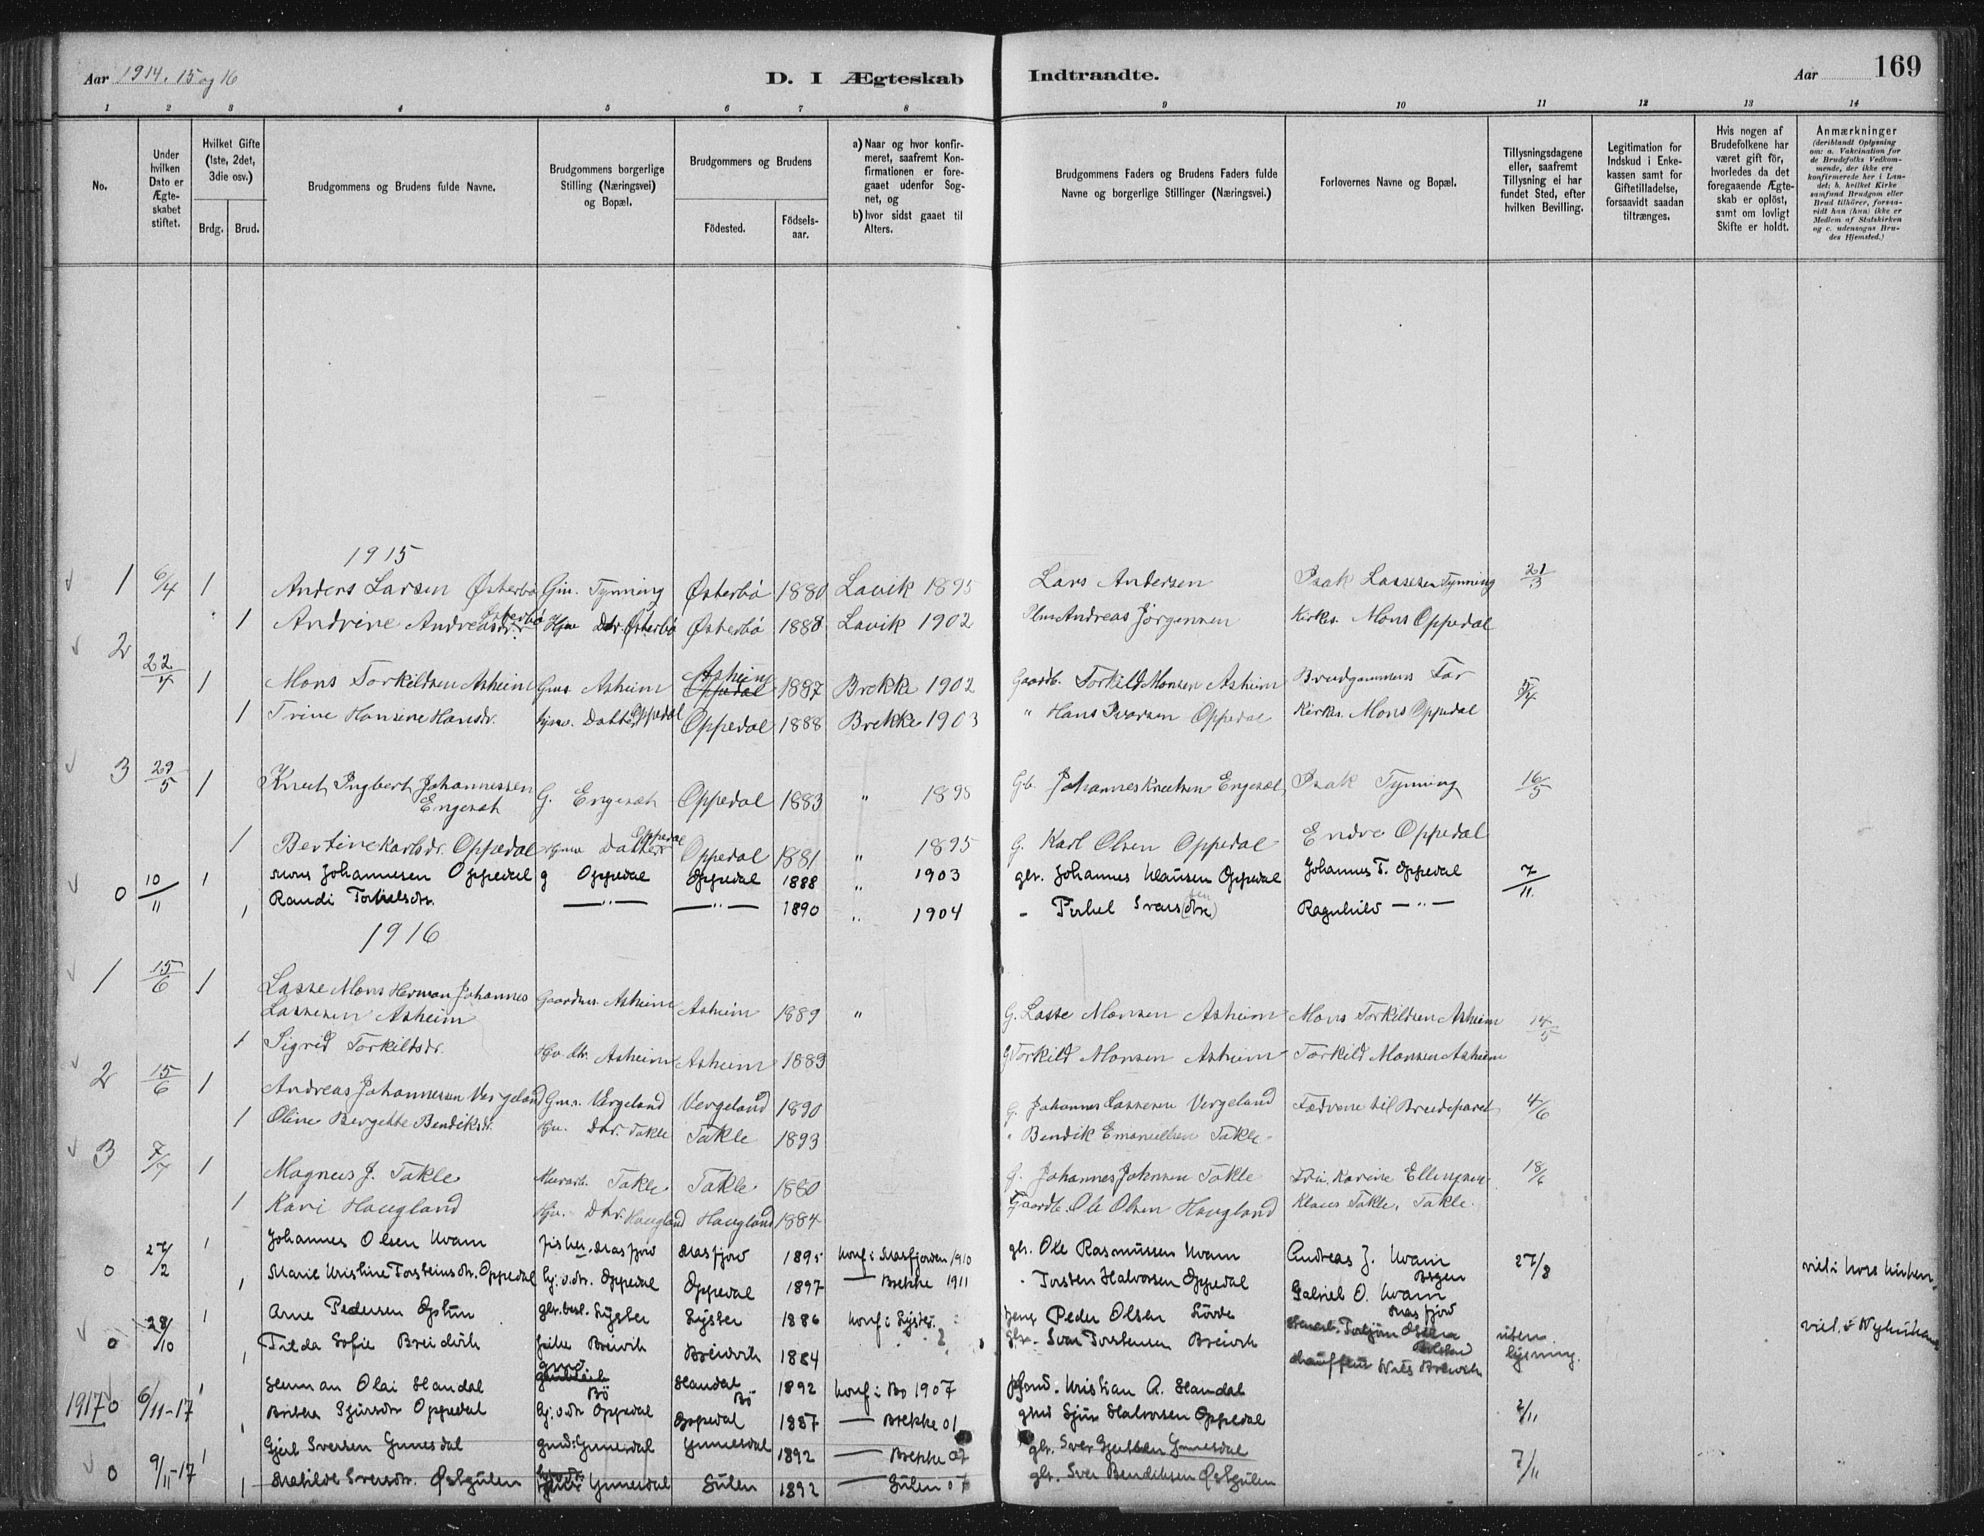 Aar 1914. 15 og 16
D. I Ægteskab Indtraadte.
Aar 169
1 2 3 4 5 6 7 8 9 10 11 12 13 14
No.
Under hvilken Dato er Ægteskabet stiftet.
Hvilket Gifte (1ste, 2det, 3die osv.)
Brdg. Brud.
Brudgommens og Brudens fulde Navne.
Brudgommens borgerlige Stilling (Næringsvei) og Bopæl.
Brudgommens og Brudens
Födested. Födselsaar.
a) Naar og hvor konfirmeret, saafremt Konfirmationen er foregaaet udenfor Sognet, og
b) hvor sidst gaaet til Alters.
Brudgommens Faders og Brudens Faders fulde Navne og borgerlige Stillinger (Næringsvei.)
Forlovernes Navne og Bopæl.
Tillysningsdagene eller, saafremt Tillysning ei har fundet Sted, efter hvilken Bevilling.
Legitimation for Indskud i Enkekassen samt for Giftetilladelse, forsaavidt saadan tiltrænges.
Hvis nogen af Brudefolkene har været gift för, hvorledes da det foregaaende Ægteskab er oplöst, samt om lovligt Skifte er holdt.
Anmærkninger (deriblandt Oplysning om: a. Vakcination for de Brudefolks Vedkommende, der ikke ere konfirmerede her i Landet; b. hvilket Kirkesamfund Brudgom eller Brud tilhörer, forsaavidt han (hun) ikke er Medlem af Statskirken og c. udensogns Brudes Hjemsted.)
1915
1 6/4 1 Anders Larsen Østerbø Gm. Tynning Østerbö 1880 Lavik 1895 Lars Andersen Isak Lassesen Tynning 21/3
1 Andrine Andreasdr. Østerbø Hjm Dtr Østerbö Østerbö 1888 Lavik 1902 Andreas Jörgensen Kirkes. Mons Oppedal
2 22/4 1 Mons Torkildsen Asheim Gms Asheim Asheim Oppedal 1887 Brekke 1902 Gaardb. Torkild Monsen Asheim Brudgommens Far 5/4
1 Trine Hansine Hansdr. hjmv. Datter Oppedal Oppedal 1888 Brekke 1903 " Hans Ivarsen Oppedal Kirkes. Mons Oppedal
3 29/5 1 Knut Ingbert Johannessen Engesæt G. Engesæt Oppedal 1883 " 1898 Gb. Johannes Knutsen Engesæt Isak Tynning 16/5
1 Bertine Karlsdr. Oppedal Hjmv Datter Oppedal Oppedal 1881 " 1895 G. Karl Olsen Oppedal Endre Oppedal
0 10/11 1 Mons Johannesen Oppedal g Oppedal Oppedal 1888 " 1903 gbr. Johannes Klausen Oppedal Johannes T. Oppedal 7/11.
1 Randi Torkelsdtr. —"— —"— 1890 " 1904 Ragnhild —"—
1916
1 15/6 1 Lasse Mons Herman Johannes Lassesen Asheim Gaardm. Asheim Asheim 1889 " G. Lasse Monsen Asheim Mons Torkildsen Asheim 14/5
1 Sigrid Torkildsdr. Hjv. dtr. Asheim Asheim 1889 G Torkild Monsen Asheim Torkild Monsen Asheim
2 15/6 1 Andreas Johannessen Vergeland Gms. Vergeland Vergeland 1890 G. Johannes Lassesen Vergeland Fædrene til Brudeparet 4/6
1 Oline Bergitte Bendiksdr. Hjv. Dtr. Takle Takle 1893 " Bendik Emanuelsen Takle.
3 7/7 1 Magnus J. Takle Murarb. Takle Takle 1880 G. Johannes Johnsen Takle Karine Ellingsen 18/6
1 Kari Haugland Hjv. Dtr. Haugland Haugland 1884 Gaardb. Ole Olsen Haugland Klaus Takle, Takle.
0 27/2 1 Johannes Olsen Kvam fisker. Masfjord Masfjord 1895 konf i Masfjorden 1910 gbr. Ole Rasmussen Kvam Andreas J. Kvam Bergen 27/8
1 Marie Kristine Torsteinsdtr. Oppedal hj.v.dtr. Oppedal Oppedal 1897 — Brekke 1911 " Torsten Halvorsen Oppedal Gabriel O. Kvam Masfjord
0 28/10 1 Arne Pedersen Lyster Lyster 1886 konf i Lyster. Peder Olsen uten lysning.
1 Tilda Sofie Breidvik Breivik Breidvik 1884 gbr. Svar Torstensen Breivik chauffeur Nils Breivik
1917 0 6/11-17 1 Herman Olai Handal Bö Handal Bö 1892 konf i Bo 1907 Kristian A. Handal 2/11
1 Oppedal hj.v.dtr Oppedal Oppedal 1887 — Brekke 01 gbr Sjur Halvorsen Oppedal
0 9/11-17 1 Gjert Sversen Ynnesdal Ynnesdal Ynnesdal 1892 — Brekke 07 gbr. Sver Ynnesdal 7/11
1 Matilde Sversdtr. Østgulen Ynnesdal Gulen 1892 — Gulen 07 gbr. Sver Bendiksen Østgulen